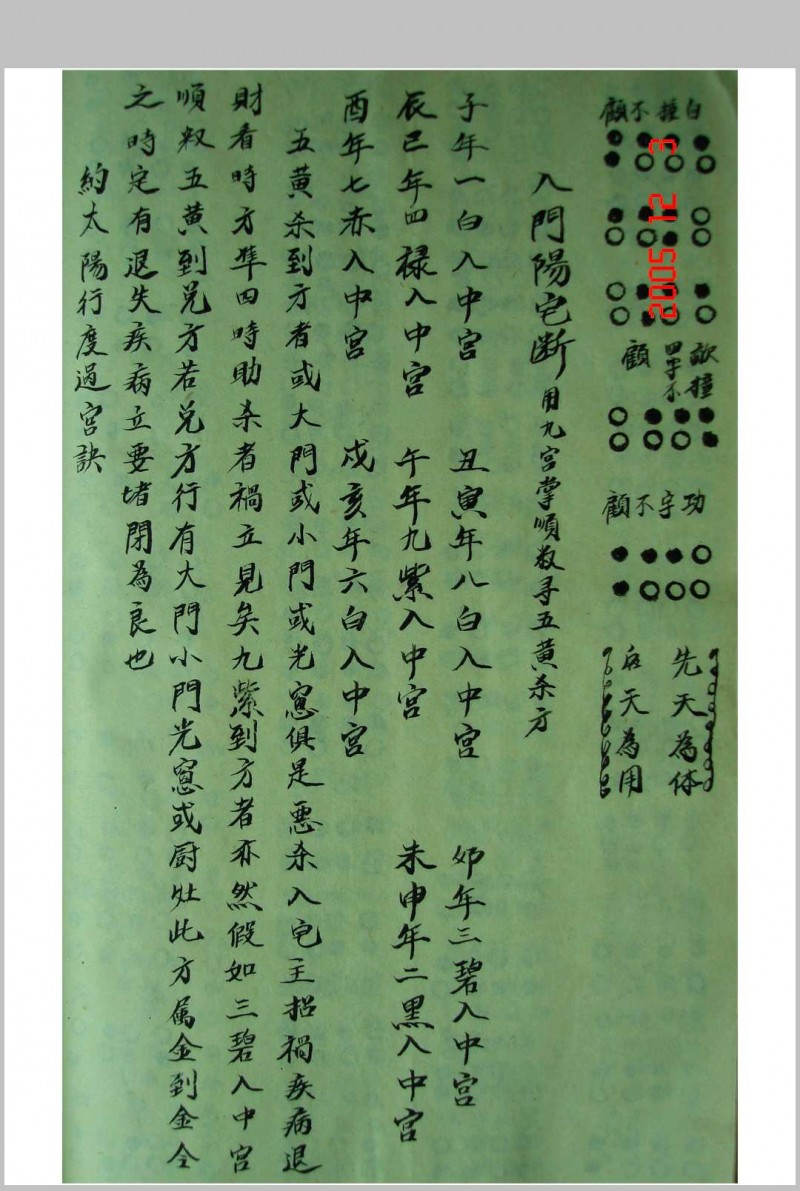 白撞不顧
歃撞
四字不
顧
功字不顧
先天為体
后天為用
入門陽宅斷 用九宮掌順数寻五黄杀方
子年一白入中宮 丑寅年八白入中宮 卯年三碧入中宮
辰巳年四禄入中宮 午年九紫入中宮 未申年二黑入中宮
酉年七赤入中宮 戌亥年六白入中宮
五黄杀到方者或大門或小門或光窓俱是悪杀入宅主招禍疾病退
財看時方準四時助杀者禍立見矣九紫到方者亦然假如三碧入中宮
順数五黄到兑方若兑方行有大門小門光窓或厨灶此方属金到金令
之時定有退失疾病立要堵閉為良也
約太陽行度過宮訣
2005 12 3